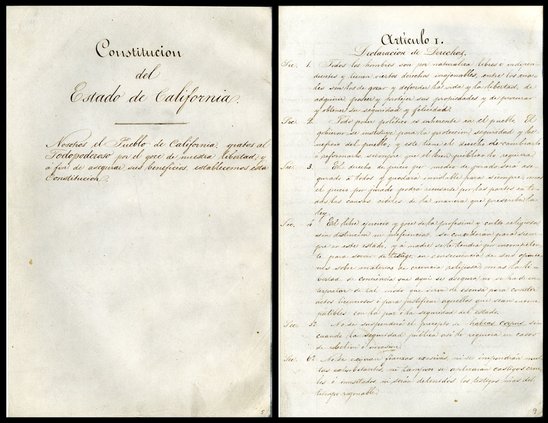 Constitucion
del
Estado de California.
Nosotros el Pueblo de California, gratos al
Todopoderoso por el goce de nuestra libertad, y
a fin de asegurar sus beneficios, establecemos esta
Constitucion
5
Articulo 1.
Declaracion de Derechos.
Sec. 1. Todos los hombres son por naturaleza libres e indepen-
dientes y tienen ciertos derechos inajenables, entre los cua-
les son los de gozar y defender la vida y la libertad, de
adquirir poseer y protejer sus propiedades y de procurar
y obtener su seguridad y felicidad.
Sec. 2. Todo poder politico es inherente en el pueblo. El
gobierno se instituye para la proteccion, seguridad y be-
neficio del pueblo, y este tiene el derecho de cambiarlo
o reformarlo, siempre que el bien publico lo requiera.
Sec. 3. El derecho de juicio por medio de jurado sera ase-
gurado á todos y quedara inviolable para siempre; mas
el juicio por jurado podrá renunciarse por las partes en to-
dos los casos civiles de la manera que prescriba la
ley.
Sec. 4. El libre ejercicio y goce de la profesion y culto religioso,
sin distincion ni preferencia se concederán para siem-
pre en este estado, y a nadie se le tendra por incompeten-
te para servir de testigo en consecuencia de sus opinio-
nes sobre materias de creencia religiosa; mas la li-
bertad de conciencia que aqui se asegura no se ha de in-
terpretar de tal modo que sirva de escusa para
actos licenciosos ó para justificar aquellos que sean incom-
patibles con la paz ó la seguridad del estado.
Sec. 5ª No se suspenderá el precepto de habeas corpus sino
cuando la seguridad pública asi lo requiera en casos
de rebelion ó invasion.
Sec. 6ª No se exijiran fianzas excesivas, ni se impondran mul-
tas exhorbitantes, ni tampoco se aplicaran castigos crue-
les é inusitados ni serán detenidos los testigos mas del
tiempo razonable.
9